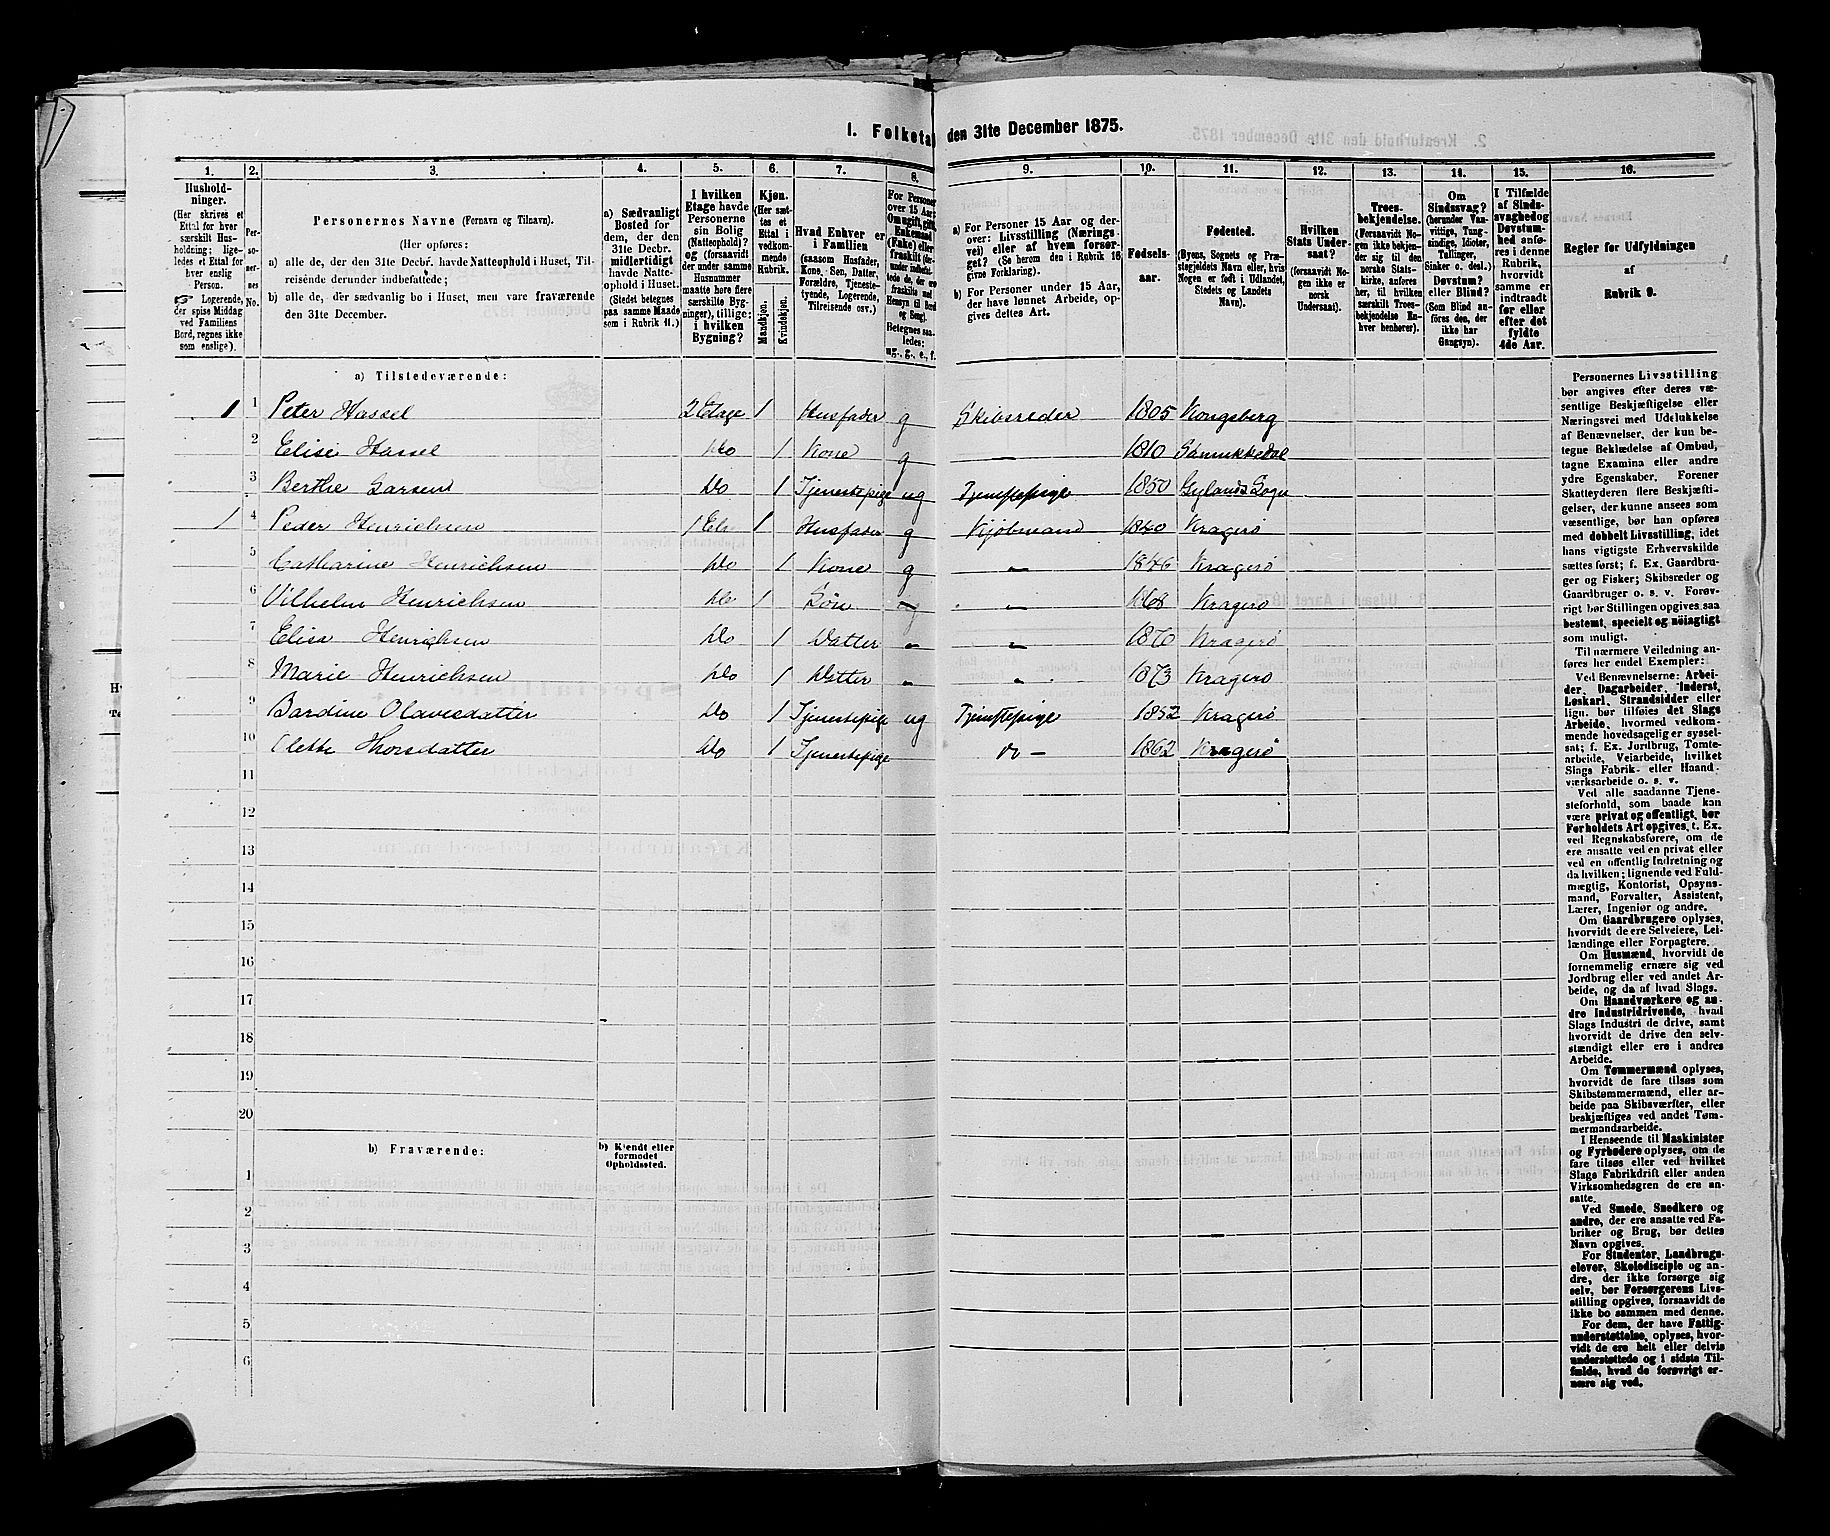 1. Folketal den 31te December 1875.
1. 2. 3. 4. 5. 6. 7. 8. 9. 10. 11. 12. 13. 14. 15. 16.
Hushold-
ninger.
(Her skrives et
Ettal for hver
særskilt Hus-
holdning; lige-
ledes et Ettal for
hver enslig
Person.
Logerende,
der spise Middag
ved Familiens
Bord, regnes ikke
som enslige).
Per-
so-
ner-
nes
No.
Personernes Navne (Fornavn og Tilnavn).
(Her opføres:
a) alle de, der den 31te Decbr. havde Natteophold i Huset, Til-
reisende derunder indbefattede;
b) alle de, der sædvanlig bo i Huset, men vare fraværende
den 31te December.
a) Sædvanligt
Bosted for
dem, der den
31te Decbr.
midlertidigt
havde Natte-
ophold i Huset.
(Stedet betegnes
paa samme Maade
som i Rubrik 11.)
I hvilken
Etage havde
Personerne
sin Bolig
(Natteophold)?
og (forsaavidt
der under samme
Husnummer
maatte høre flere
særskilte Byg-
ninger), tillige:
i hvilken
Bygning?
Kjøn.
(Her sæt-
tes et
Ettal i
vedkom-
mende
Rubrik.
Mandkjøn.
Kvindekjøn.
Hvad Enhver er
i Familien
(saasom Husfader,
Kone, Søn, Datter,
Forældre, Tjeneste-
tyende, Logerende,
Tilreisende osv.)
For Personer
over 15 Aar:
Om ugift, gift,
Enkemand
(Enke) eller
fraskilt
Betegnes saa-
ledes:
ug., g., e., f.
a) For Personer 15 Aar og der-
over: Livsstilling (Nærings-
vei) eller af hvem forsør-
get? (Se herom den i Rubrik 16
givne Forklaring).
b) For Personer under 15 Aar,
der have lønnet Arbeide, op-
gives dettes Art.
Fødsels-
aar.
Fødested.
(Byens, Sognets og Præ-
stegjeldets Navn eller, hvis
Nogen er født i Udlandet,
Stedets og Landets
Navn).
Hvilken
Stats Under-
saat?
(forsaavidt No-
gen ikke er
norsk
Undersaat).
Troes-
bekjendelse.
(Forsaavidt No-
gen ikke bekjen-
der sig til den
norske Stats-
kirke, anføres
her, til hvilken
særskilt Troes-
bekjendelse En-
hver henhører).
Om
Sindssvag?
(herunder Van-
vittige, Tung-
sindige, Idioter,
Tullinger,
Sinker o. desl.)
Døvstum?
eller Blind?
(Som Blind an-
føres den, der
ikke har
Gangsyn).
I Tilfælde
af Sinds-
svaghed og
Døvstum-
hed anfø-
res i denne
Rubrik,
hvorvidt
samme er
indtraadt
før eller
efter det
fyldte
4de Aar.
Regler for Udfyldningen
af
Rubrik 9.
a) Tilstedeværende:
1 1 Peter Hassel 2 Etage 1 Husfader g Skibsreder 1805 Kongsberg
2 Elise Hassel do 1 Kone g — 1810 Sannikedal
3 Berthe Larsen do 1 Tjenestepige ug Tjenestepige 1850 Gylands Sogn
1 4 Peder Henrichsen 1 Et 1 Husfader g Kjøbmand 1840 Kragerö
5 Catharine Henrichsen do 1 Kone g — 1846 Kragerö
6 Vilhelm Henrichsen do 1 Søn — — 1868 Kragerö
7 Elisa Henrichsen do 1 Datter — — 1870 Kragerö
8 Marie Henrichsen do 1 Datter — — 1873 Kragerö
9 Bardine Olavesdatter do 1 Tjenestepige ug Tjenestepige 1852 Kragerö
10 Olette Thorsdatter do 1 Tjenestepige do — 1862 Kragerö
11
12
13
14
15
16
17
18
19
20
b) Fraværende:
b) Kjendt eller
formodet
Opholdssted.
1
2
3
4
5
6
Personernes Livsstilling
bør angives efter deres væ-
sentlige Beskjæftigelse eller
Næringsvei med Udelukkelse
af Benævnelser, der kun be-
tegne Beklædelse af Ombud,
tagne Examina eller andre
ydre Egenskaber. Forener
Skatteyderen flere Beskjæfti-
gelser, der kunne ansees som
væsentlige, bør han opføres
med dobbelt Livsstilling, idet
hans vigtigste Erhvervskilde
sættes først; f. Ex. Gaardbru-
ger og Fisker; Skibsreder og
Gaardbruger o. s. v. Forøv-
rigt bør Stillingen opgives saa
bestemt, specielt og nøiagtigt
som muligt.
Til nærmere Veiledning an-
føres her endel Exempler:
Ved Benævnelserne: Arbei-
der, Dagarbeider, Inderst,
Løskarl, Strandsidder eller
lign. bør tilføies det Slags
Arbeide, hvormed vedkom-
mende hovedsagelig er syssel-
sat; f. Ex. Jordbrug, Tomte-
arbeide, Veiarbeide, hvilket
Slags Fabrik- eller Haand-
værksarbeide o. s. v.
Ved alle saadanne Tjene-
steforhold, som baade kan
være privat og offentligt, bør
Forholdets Art opgives, t. Ex.
ved Regnskabsførere, om de
ere ansatte ved en privat eller
ved en offentlig Indretning og
da hvilken; lignende ved Fuld-
mægtig, Kontorist, Opsyns-
mand, Forvalter, Assistent,
Lærer, Ingeniør og andre.
Om Gaardbrugere oplyses,
hvorvidt de ere Selveiere, Lei-
lændinge eller Forpagtere.
Om Husmænd, hvorvidt de
fornemmelig ernære sig ved
Jordbrug eller ved andet Ar-
beide, og da af hvad Slags.
Om Haandværkere og an-
dre Industridrivende, hvad
Slags Industri de drive, samt
hvorvidt de drive den selv-
stændigt eller ere i andres
Arbeide.
Om Tømmermænd oplyses,
hvorvidt de fare tilsøs som
Skibstømmermænd, eller ar-
beide paa Skibsværfter, eller
beskjæftiges ved andet Tøm-
mermandsarbeide.
I Henseende til Maskinister
og Fyrbødere oplyses, om de
fare tilsøs eller ved hvilket
Slags Fabrikdrift eller anden
Virksomhedsgren de ere an-
satte.
Ved Smede, Snedkere og
andre, der ere ansatte ved Fa-
briker og Brug, bør dettes
Navn opgives.
For Studenter, Landbrugs-
elever, Skoledisciple og an-
dre, der ikke forsørge sig
selv, bør Forsørgerens Livs-
stilling opgives, forsaavidt de
ikke bo sammen med denne.
For dem, der have Fattig-
understøttelse, oplyses, hvor-
vidt de ere helt eller delvis
understøttede og i sidste Til-
fælde, hvad de forøvrigt er-
nære sig ved.